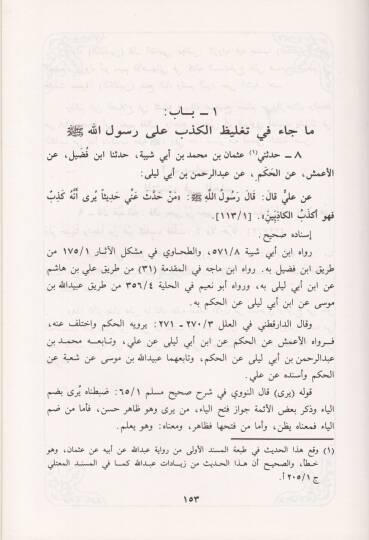 ١ ــ بــاب:
ما جاء في تغليظ الكذب على رسول الله ﷺ
٨ ــ حدثني(١) عثمان بن محمد بن أبي شيبة، حدثنا ابن فُضَيل، عن
الأعمش، عن الحَكَم، عن عبدالرحمن بن أبي ليلى:
عن عليٍّ قالَ: قَالَ رَسُولُ اللَّهِ ﷺ: «مَنْ حَدَّثَ عَنِّي حَدِيثاً يُرى أَنَّهُ كَذِبٌ
فهو أكذَبُ الكاذِبِينَ». [١١٣/١].
إسناده صحيح.
رواه ابن أبي شيبة ٥٧١/٨، والطحاوي في مشكل الآثار ١٧٥/١ من
طريق ابن فضيل به. رواه ابن ماجه في المقدمة (٣١) من طريق علي بن هاشم
عن ابن أبي ليلى به، ورواه أبو نعيم في الحلية ٣٥٦/٤ من طريق عبيدالله بن
موسى عن ابن أبي ليلى عن الحكم به.
وقال الدارقطني في العلل ٢٧٠/٣ ــ ٢٧١: يرويه الحكم واختلف عنه،
فــرواه الأعمش عن الحكم عن ابن أبي ليلى عن علي، وتـابـعـه محمـد بن
عبدالرحمن بن أبي ليلى عن الحكم، وتابعهما عبيدالله بن موسى عن شعبة عن
الحكم وأسنده عن علي.
قوله (يرى) قال النووي في شرح صحيح مسلم ٦٥/١: ضبطناه يُرى بضم
الياء وذكر بعض الأئمة جواز فتح الياء، من يرى وهو ظاهر حسن، فأما من ضم
الياء فمعناه يظن، وأما من فتحها فظاهر، ومعناه: وهو يعلم.
(١) وقع هذا الحديث في طبعة المسند الأولى من رواية عبدالله عن أبيه عن عثمان، وهو
خـطأ، والصحيـح أن هـذا الحـديث من زيـادات عبـدالله كمـا في المسنـد المعتلي
ج ٢٠٥/١ أ.
١٥٣